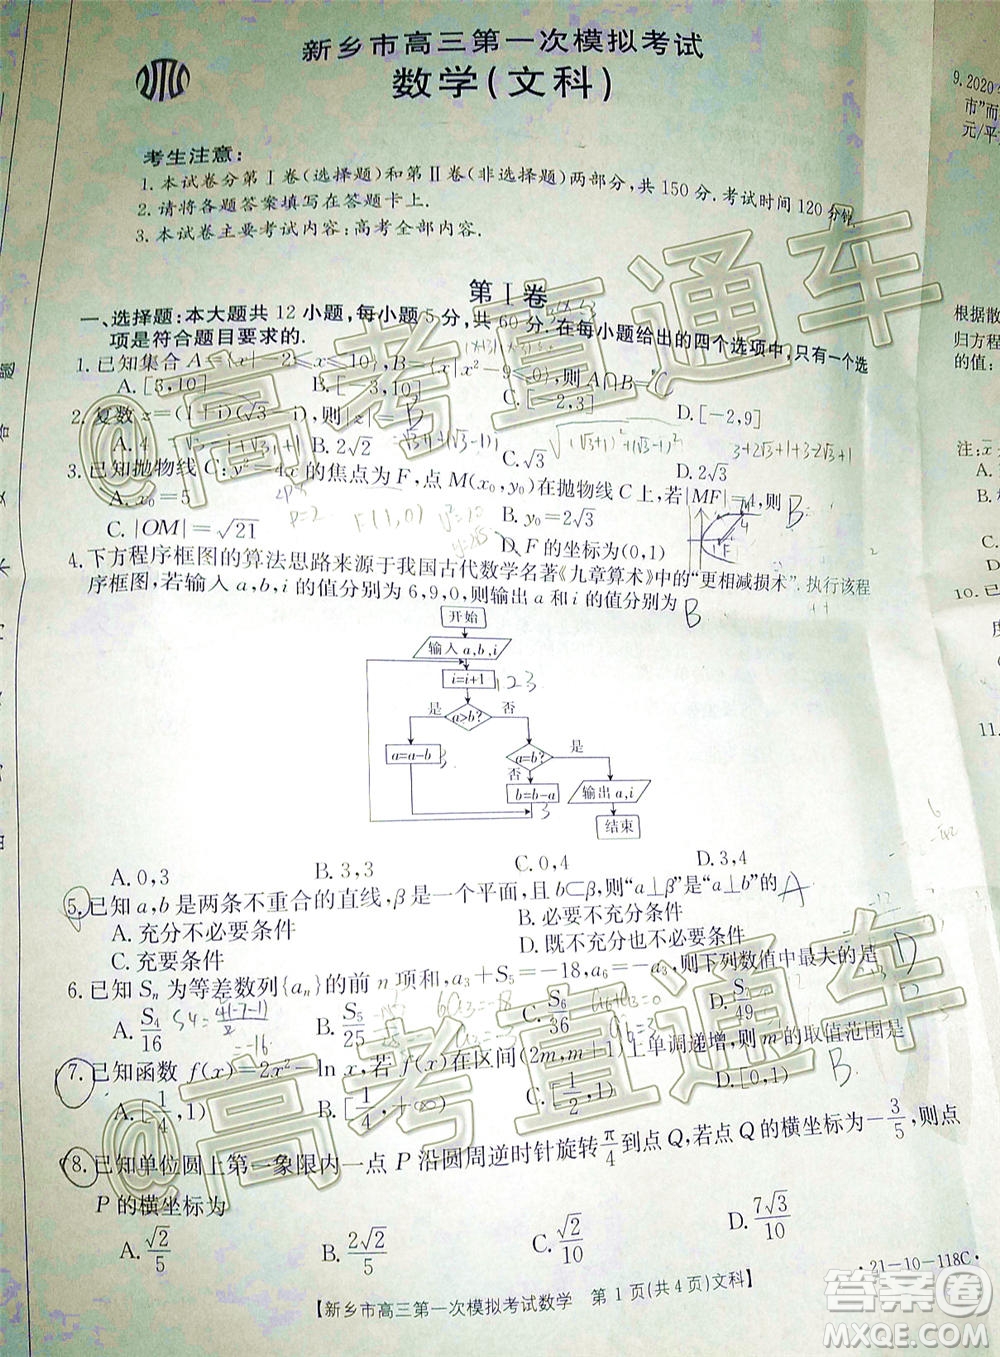 新乡市高三第一次模拟考试
数学(文科)
考生注意:
1.本试卷分第Ⅰ卷(选择题)和第Ⅱ卷(非选择题)两部分,共150分.考试时间120分钟
2.请将各题答案填写在答题卡上.
3.本试卷主要考试内容:高考全部内容.
第Ⅰ卷
一、选择题:本大题共12小题,每小题5分,共60分.在每小题给出的四个选项中,只有一个选
项是符合题目要求的.
1.已知集合A={x|-2≤x≤10},B={x|x²-9≤0},则A∩B= C
A.[3,10] B.[-3,10] C.[-2,3] D.[-2,9]
2.复数z=(1+i)(√3-i),则|z|= B
A.4 B.2√2 C.√3 D.√2
3.已知抛物线C:y²=4x的焦点为F,点M(x₀,y₀)在抛物线C上,若|MF|=4,则 B
A.x₀=5 B.y₀=2√3
C.|OM|=√21 D.F的坐标为(0,1)
P=2 F(1,0)
4.下方程序框图的算法思路来源于我国古代数学名著《九章算术》中的“更相减损术”.执行该程
序框图,若输入a,b,i的值分别为6,9,0,则输出a和i的值分别为 B
开始
输入a,b,i
i=i+1 123
是 a>b? 否
a=a-b 3 a=b? 是
否
b=b-a 3 输出a,i
结束
A.0,3 B.3,3 C.0,4 D.3,4
5.已知a,b是两条不重合的直线,β是一个平面,且b⊂β,则“a⊥β”是“a⊥b”的 A
A.充分不必要条件 B.必要不充分条件
C.充要条件 D.既不充分也不必要条件
6.已知Sₙ为等差数列{aₙ}的前n项和,a₃+S₅=-18,a₆=0,则下列数值中最大的是 D
A.S₄/16 B.S₅/25 C.S₆/36 D.S₇/49
7.已知函数f(x)=2x²-ln x,若f(x)在区间(2m,m+1)上单调递增,则m的取值范围是 B
A.[1/4,1) B.[1/4,+∞) C.[1/2,1) D.[0,1)
8.已知单位圆上第一象限内一点P沿圆周逆时针旋转π/4到点Q,若点Q的横坐标为-3/5,则点
P的横坐标为
A.√2/5 B.2√2/5 C.√2/10 D.7√3/10
【新乡市高三第一次模拟考试数学 第1页(共4页)文科】
·21-10-118C·
9.2020年
市”而
元/平
根据散
归方程
的值:
10.已
11.
@高考直通车
@高考直通车
答案圈
MXQE.COM